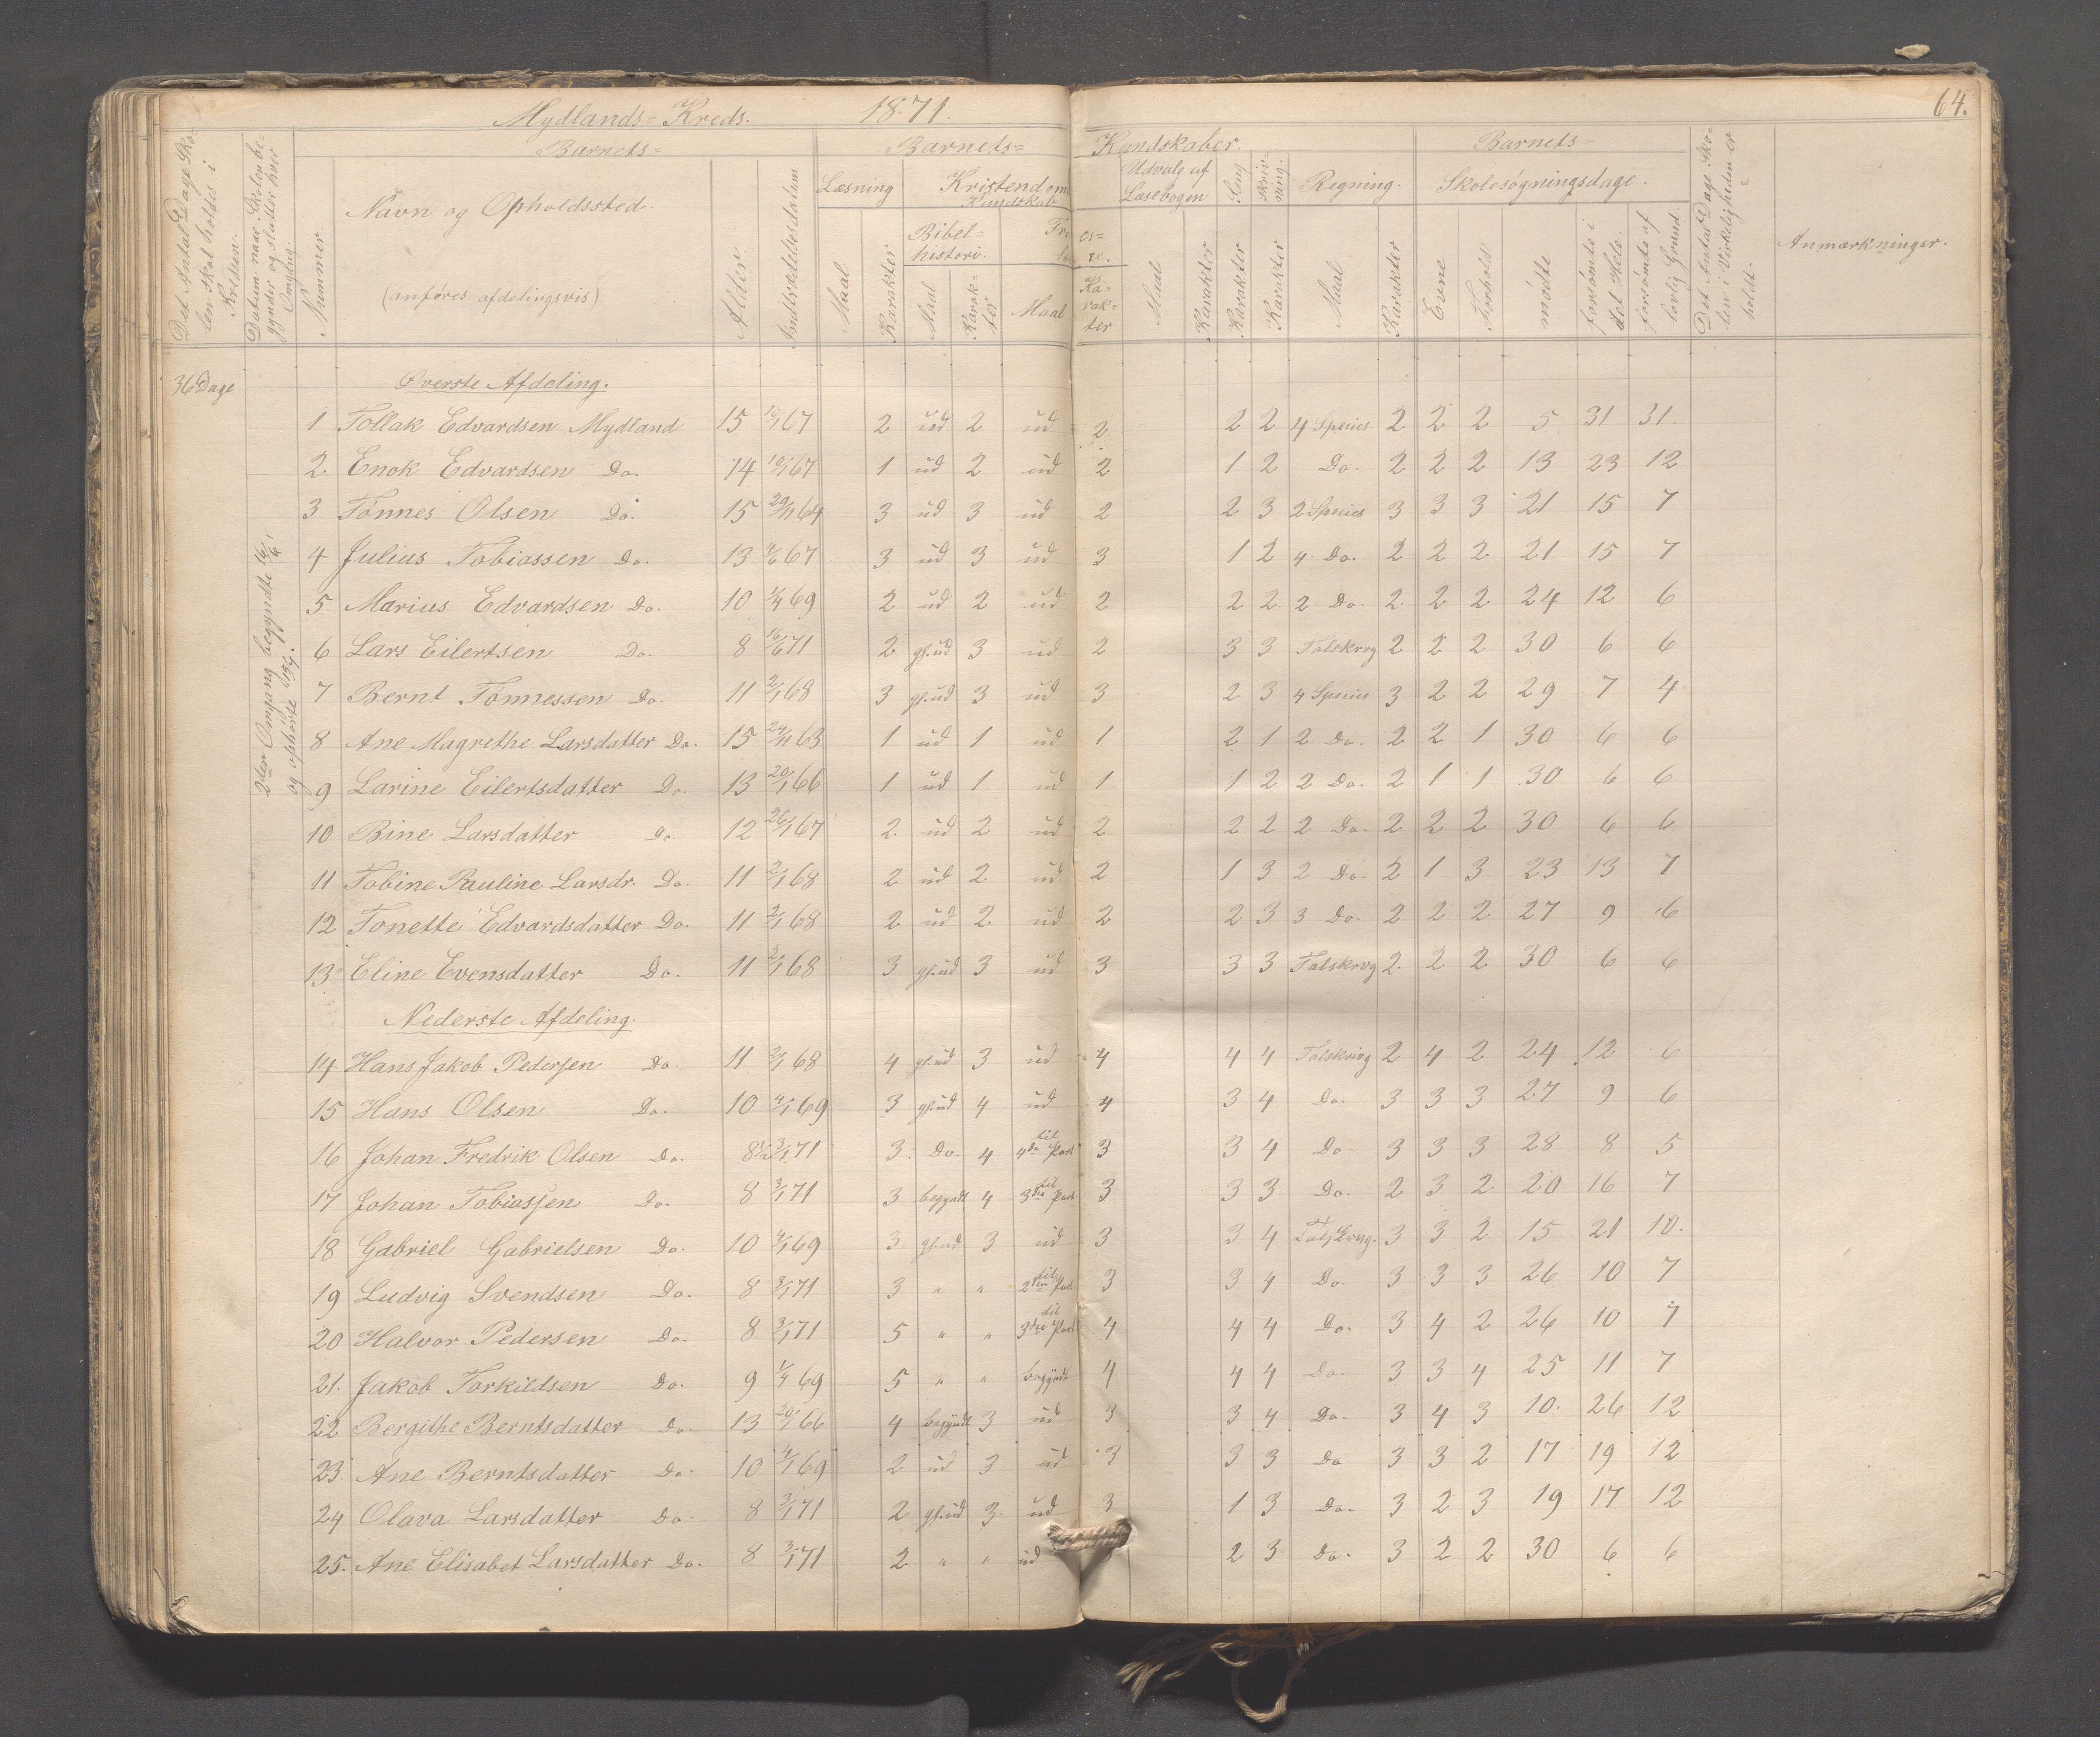 Mydlands=Kreds. 1871. 64.
Det Antal Dage Sko=
len skal holdes i
Kredsen.
Datum naar Skolen be=
gynder og slutter hver
Omgang.
Nummer.
Barnets=
Navn og Opholdssted.
(anføres afdelingsvis)
Alder
Indtrædelsesdatum
Barnets= Kundskaber.
Læsning
Maal
Karakter
Kristendoms
Kundskab
Bibel=
historie.
Maal
Karak=
ter
Maal
Ka=
rak=
ter
Udvalg af
Læsebogen
Maal
Karakter
Sang
Karakter
Skriv=
ning.
Karakter
Regning.
Maal
Karakter
Barnets
Skolesøgningsdage.
Evne
Forhold
mødte
forsømte i
det Hele.
forsømte af
lovlig Grund.
Det Antal Dage Sko=
len i Virkeligheden er
holdt.
Anmærkninger.
36 Dage
2den Omgang begyndte 16/6
og ophørte 15/7.
Øverste Afdeling.
1 Tollak Edvardsen Mydland 15 10/1 67 2 ud 2 ud 2 2 2 4 Species 2 2 2 5 31 31.
2. Enok Edvardsen Do. 14 10/1 67 1 ud 2 ud 2 1 2 Do. 2 2 2 13 23 12
3 Tønnes Olsen Do. 15 29/11 64 3 ud 3 ud 2 2 3 2 Species 3 3 3 21 15 7
4 Julius Tobiassen Do. 13 4/6 67 3 ud 3 ud 3 1 2 4 Do. 2 2 2 21 15 7
5 Marius Edvardsen Do. 10 1/4 69 2 ud 2 ud 2 2 2 2 Do. 2 2 2 24 12 6
6 Lars Eilertsen Do. 8 16/6 71 2 gl.ud 3 ud 2 3 3 Talskrvg 2 2 2 30 6 6
7 Bernt Tønnessen Do. 11 2/1 68 3 gl.ud 3 ud 3 2 3 4 Species 3 2 2 29 7 4
8 Ane Magrethe Larsdatter Do. 15 24/11 63 1 ud 1 ud 1 2 1 2 Do. 2 2 1 30 6 6
9 Larine Eilertsdatter Do. 13 20/1 66 1 ud 1 ud 1 1 2 2 Do. 2 1 1 30 6 6
10 Bine Larsdatter Do. 12 26/1 67 2 ud 2 ud 2 2 2 2 Do. 2 2 2 30 6 6
11 Tobine Pauline Larsdr. Do. 11 2/1 68 2 ud 2 ud 2 1 3 2 Do. 2 1 3 23 13 7
12 Tonette Edvardsdatter Do. 11 2/1 68 2 ud 2 ud 2 2 3 3 Do. 2 2 2 27 9 6
13 Eline Evensdatter Do. 11 2/1 68 3 gl.ud 3 ud 3 3 3 Talskrvg 2 2 2 30 6 6
Nederste Afdeling.
14 Hans Jakob Pedersen Do. 11 2/1 68 4 gl.ud 3 ud 4 4 4 Talskrivg 2 4 2 24 12 6
15 Hans Olsen Do. 10 4/1 69 3 gl.ud 4 ud 4 3 4 Do. 3 3 3 27 9 6
16 Johan Fredrik Olsen Do. 8 1/2 3/1 71 3 Do. 4 til 4de Part 3 3 4 Do 3 3 3 28 8 5
17 Johan Tobiassen Do. 8 3/1 71 3 begyndt 4 til 3die Part 3 3 3 Do. 2 3 2 20 16 7
18 Gabriel Gabrielsen Do. 10 4/1 69 3 gl.ud 3 ud 3 3 4 3 3 2 15 21 10.
19 Ludvig Svendsen Do. 8 3/1 71 3 " " til 2den Part 3 3 4 Do 3 3 3 26 10 7
20 Halvor Pedersen Do. 8 3/1 71 5 " " til 3die Part 4 4 4 Do. 3 4 2 26 10 7
21. Jakob Torkildsen Do. 9 1/4 69 5 " " begyndt 4 4 4 Do. 3 3 4 25 11 7
22 Bergithe Berntsdatter Do. 13 20/1 66 4 begyndt 3 ud 3 3 4 Do. 3 4 3 10. 26 12
23. Ane Berntsdatter Do. 10 4/1 69 2 ud 3 ud 3 3 3 Do 3 3 2 17 19 12
24 Olava Larsdatter Do. 8 3/1 71 2 gl.ud 3. ud 3 1 3 Do. 3 2 3 19 17 12
25. Ane Elisabet Larsdatter Do. 8 3/1 71 2 " " ud 2 3 Do. 3 2 2 30 6 6